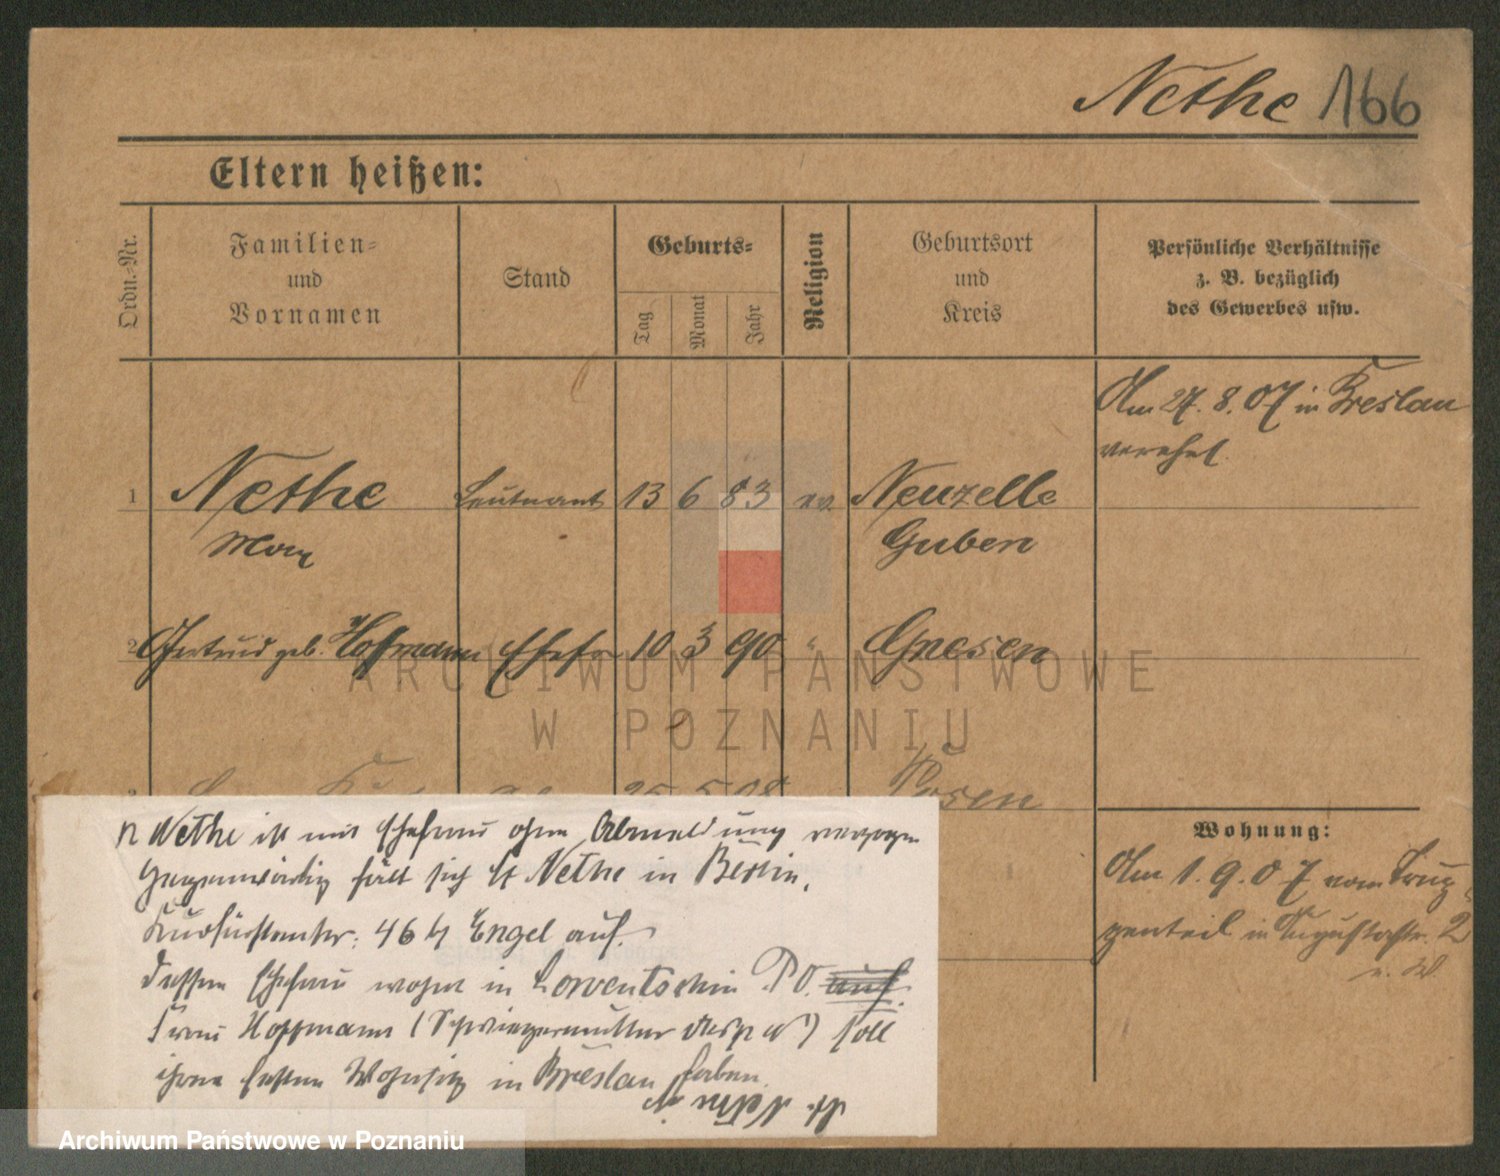 Nethe 166
Eltern heißen:
Ordn.-Nr.
Familien-
und
Vornamen
Stand
Geburts-
Tag
Monat
Jahr
Religion
Geburtsort
und
Kreis
Persönliche Verhältnisse
z. B. bezüglich
des Gewerbes usw.
Am 27. 8. 07 in Breslau
verehel.
1 Nethe Leutnant 13 6 83 ev. Neuzelle
Max Guben
2 Gertrud geb. Hoffmann Ehefr 10 3 90 " Gnesen
ARCHIWUM PAŃSTWOWE
W POZNANIU
3 25 5 08 Posen
Wohnung:
Am 1. 9. 07 vom Trup-
penteil in Augustastr. 2
n Nethe ist mit Ehefrau ohne Abmeldung verzogen
Gegenwärtig hält sich Nethe in Berlin,
Kurfürstenstr. 46 Engel auf.
Dessen Ehefrau wohnt in Lowentschin Po. auf.
Frau Hoffmann (Schwiegermutter des N) soll
ihren festen Wohnsitz in Breslau haben.
Archiwum Państwowe w Poznaniu